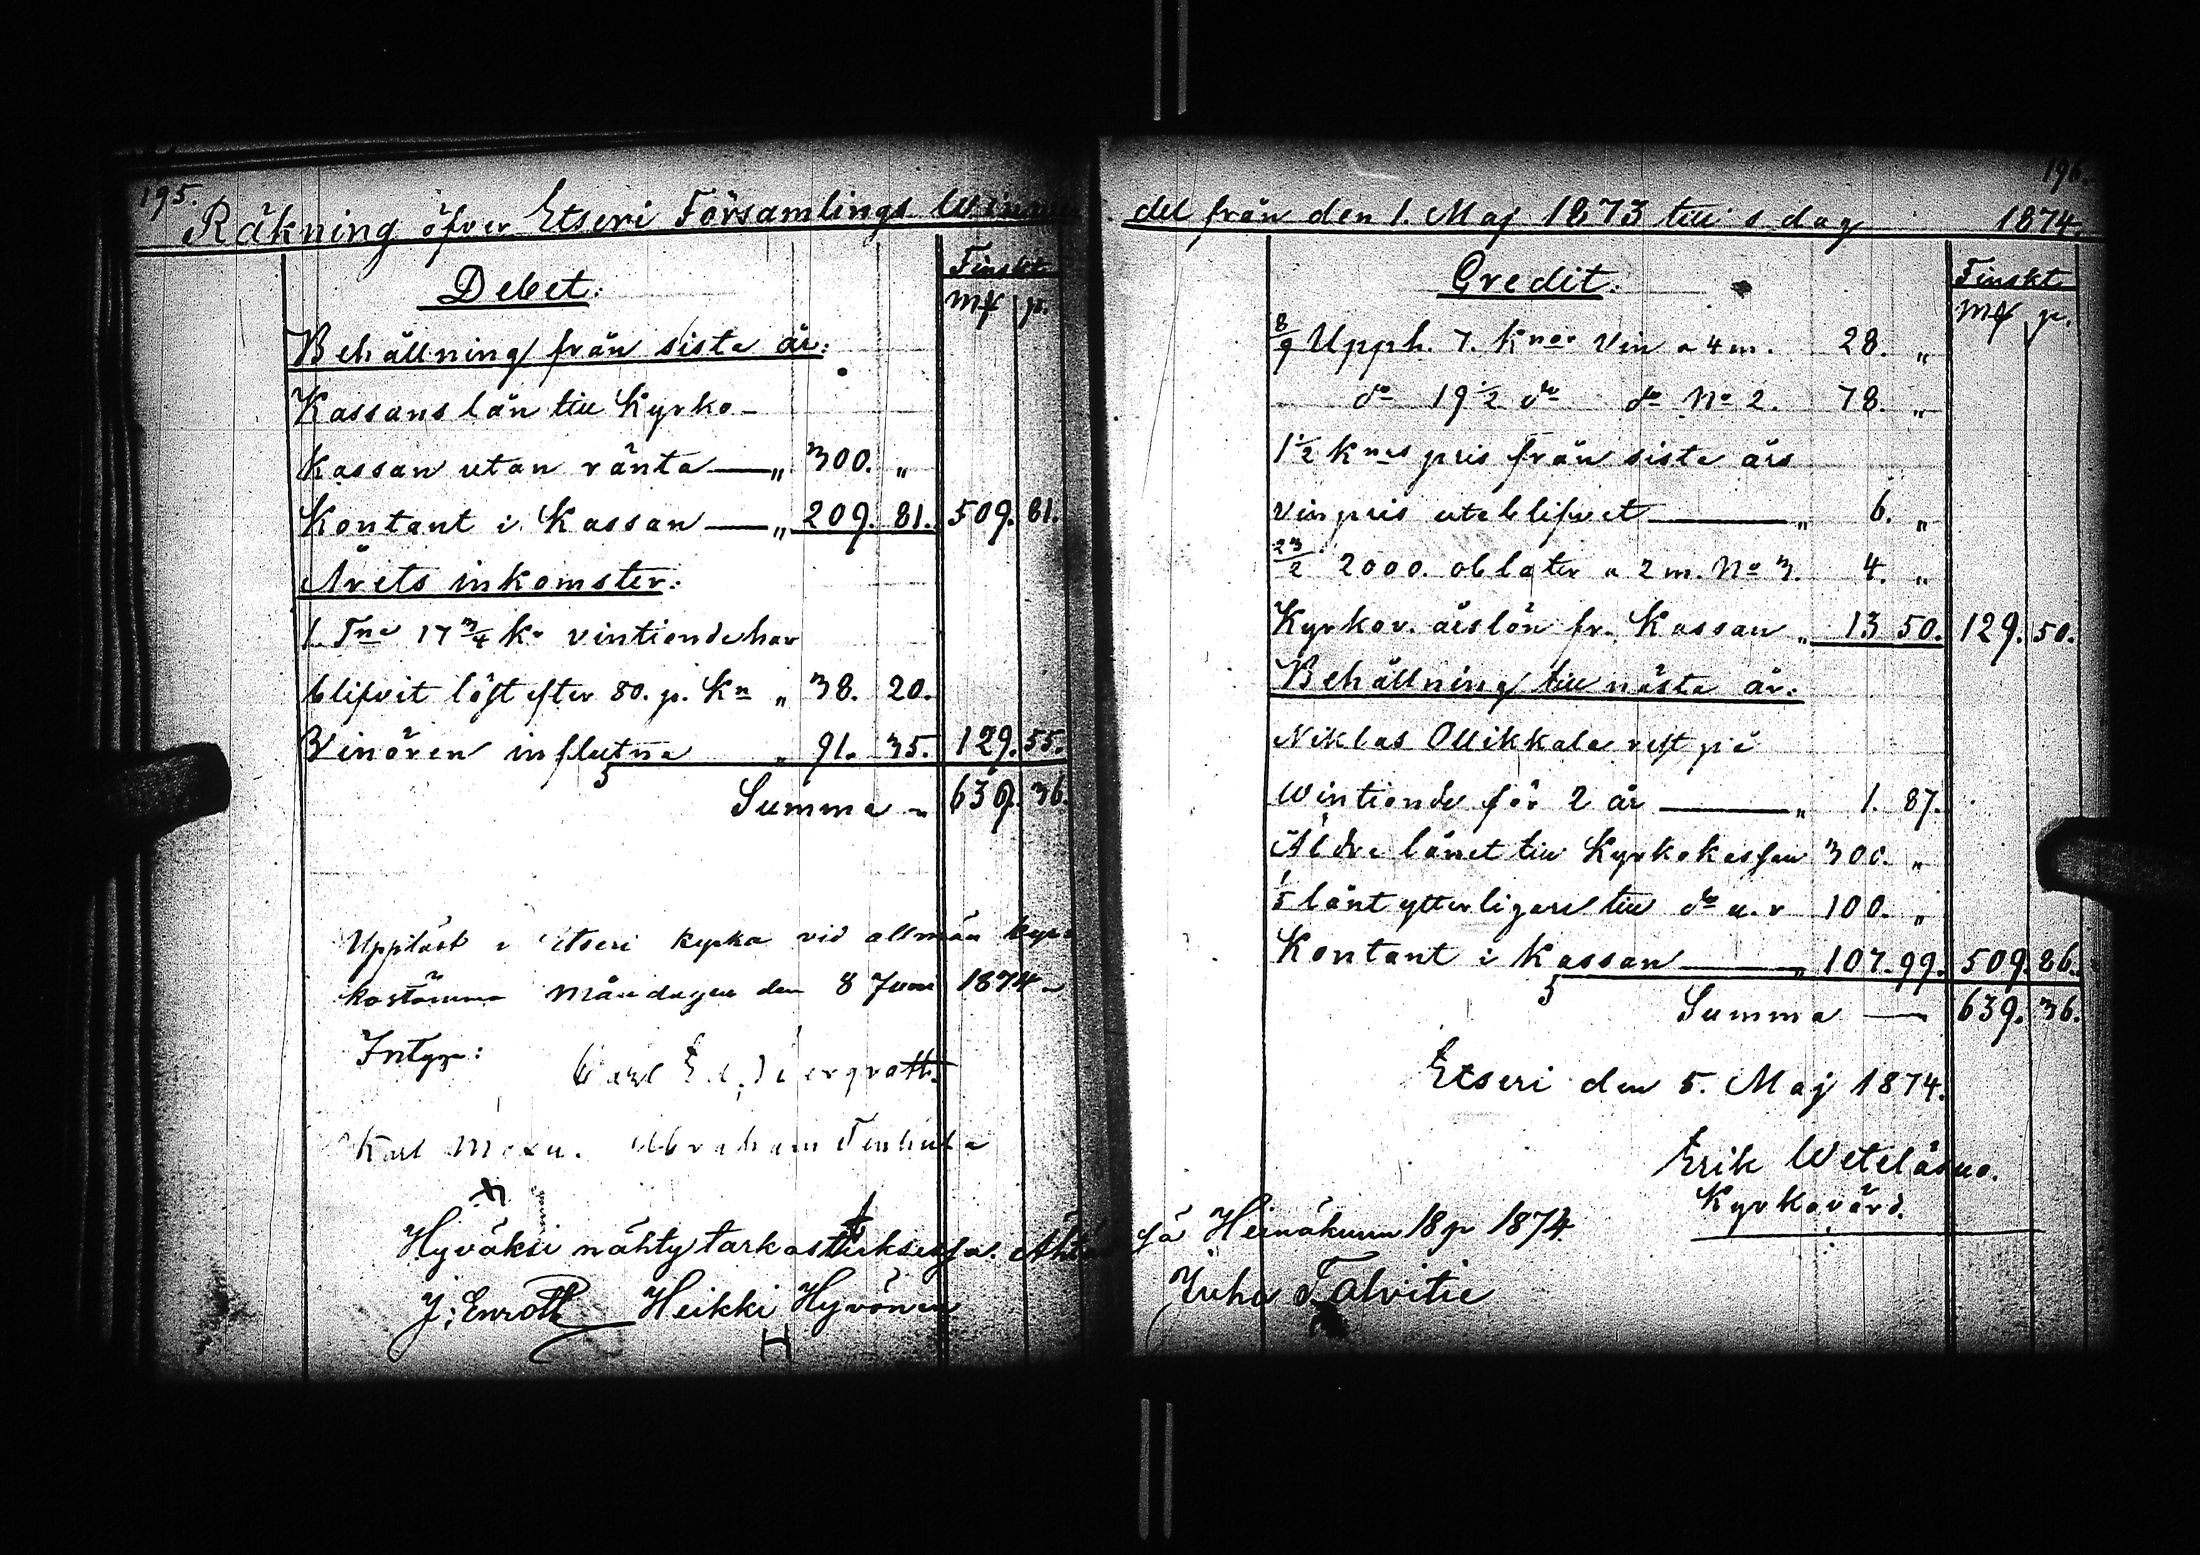 195.
Räkning öfver Etseri Församlings Winme
Debet:
Finskt
mk p.
Behållning från sista år:
Kassans lån till Kyrko-
Kassan utan ränta — „ 300. „
Kontant i Kassan — „ 209. 81. 509. 81.
Årets inkomster:
1. Tna 17 3/4 Kr vintionde har
blifvit löst efter 80. p. Kn „ 38. 20.
Vinören influtna „ 91. 35. 129. 55.
Summa „ 639. 36.
Uppläst i Etseri kyrka vid allmän kyr-
kostämma Måndagen den 8 Juni 1874 –
Intyga:
Carl
Karl Abraham
Hyväksi nähty tarkastuksessa. Ähtä
J. Enroth Heikki Hyvönen
H
196.
del från den 1. Maj 1873 till s dag 1874.
Credit.
Finskt
mk p.
8/9 Upph. 7. Knor Vin a 4 m. 28. „
do 19 1/2 do do No 2. 78. „
1 1/2 Knas pris från sista års
vinpris uteblifvet — „ 6. „
23/2 2000. oblater a 2 m. No 3. 4. „
Kyrkov. årslön fr. Kassan „ 13 50. 129. 50.
Behållning till nästa år:
Niklas Ollikkala rest på
Wintionde för 2 år — „ 1. 87.
Äldre lånet till Kyrkokassan 300. „
1/5 lånt ytterligare till do u. r 100. „
Kontant i Kassan — „ 107. 99. 509. 86.
Summa — 639. 36.
Etseri den 5. Maj 1874.
Erik Weteläsuo.
Kyrkovärd.
sä Heinäkuun 18 p 1874
Juha Talvitie